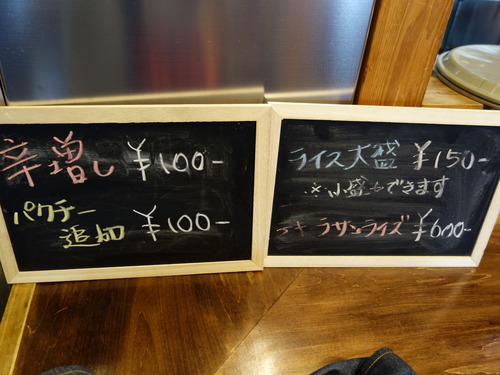 辛増し ¥100-
パクチー
追加 ¥100-
ライス大盛 ¥150-
※小盛もできます
テキーラサンライズ ¥600-